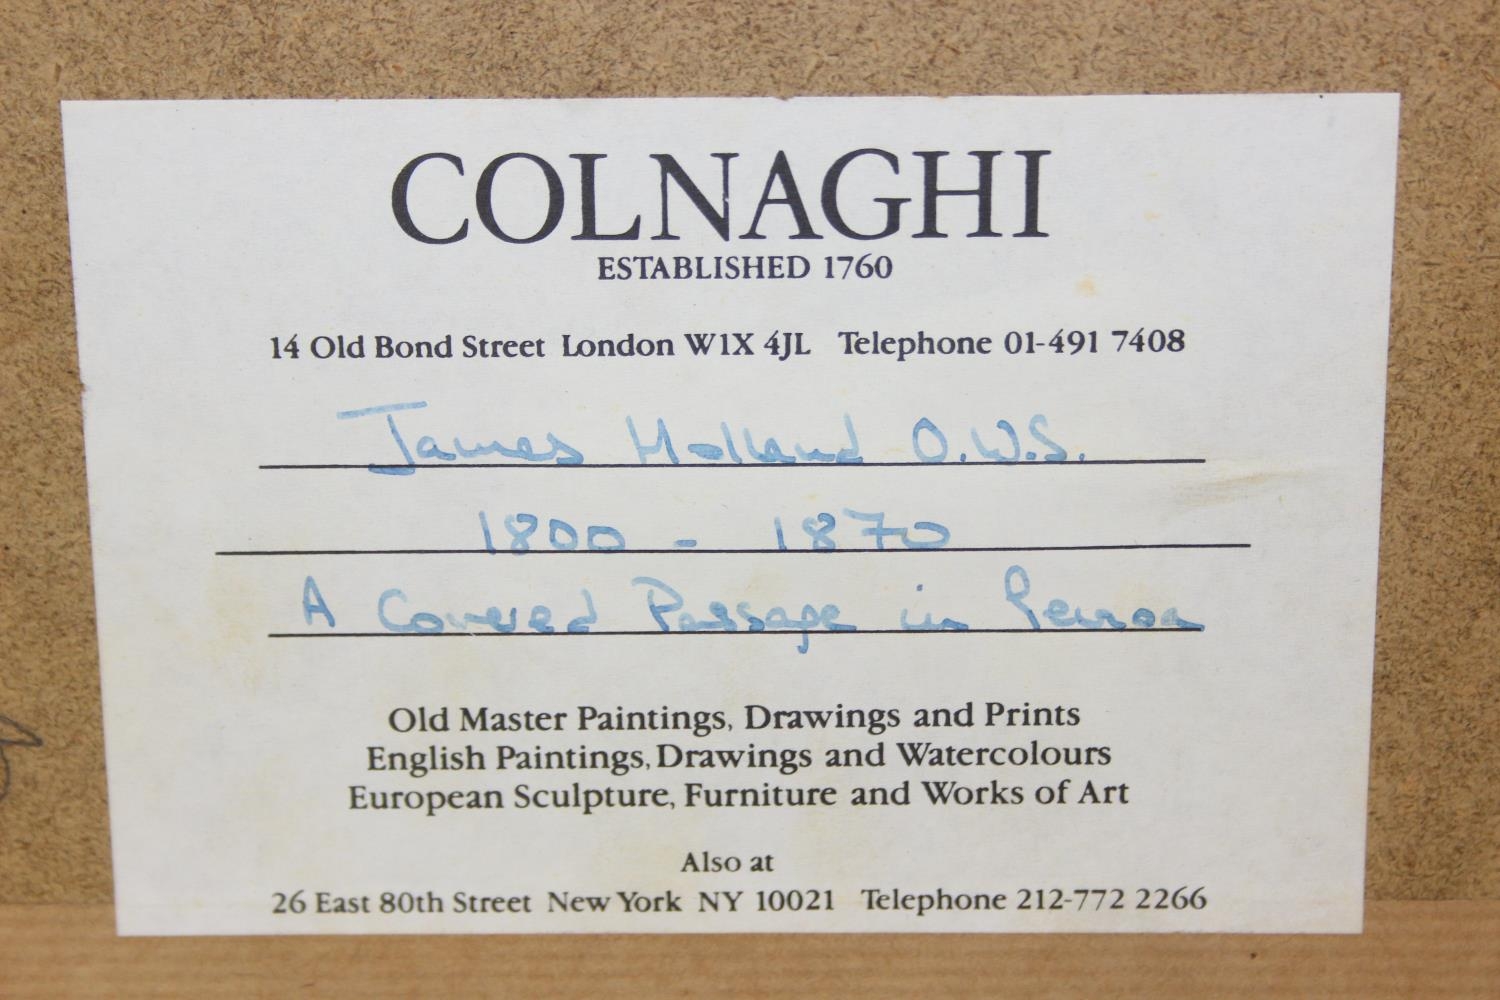 COLNAGHI
ESTABLISHED 1760
14 Old Bond Street London W1X 4JL Telephone 01-491 7408
James Holland O.W.S.
1800 - 1870
A Covered Passage in Genoa
Old Master Paintings, Drawings and Prints
English Paintings, Drawings and Watercolours
European Sculpture, Furniture and Works of Art
Also at
26 East 80th Street New York NY 10021 Telephone 212-772 2266